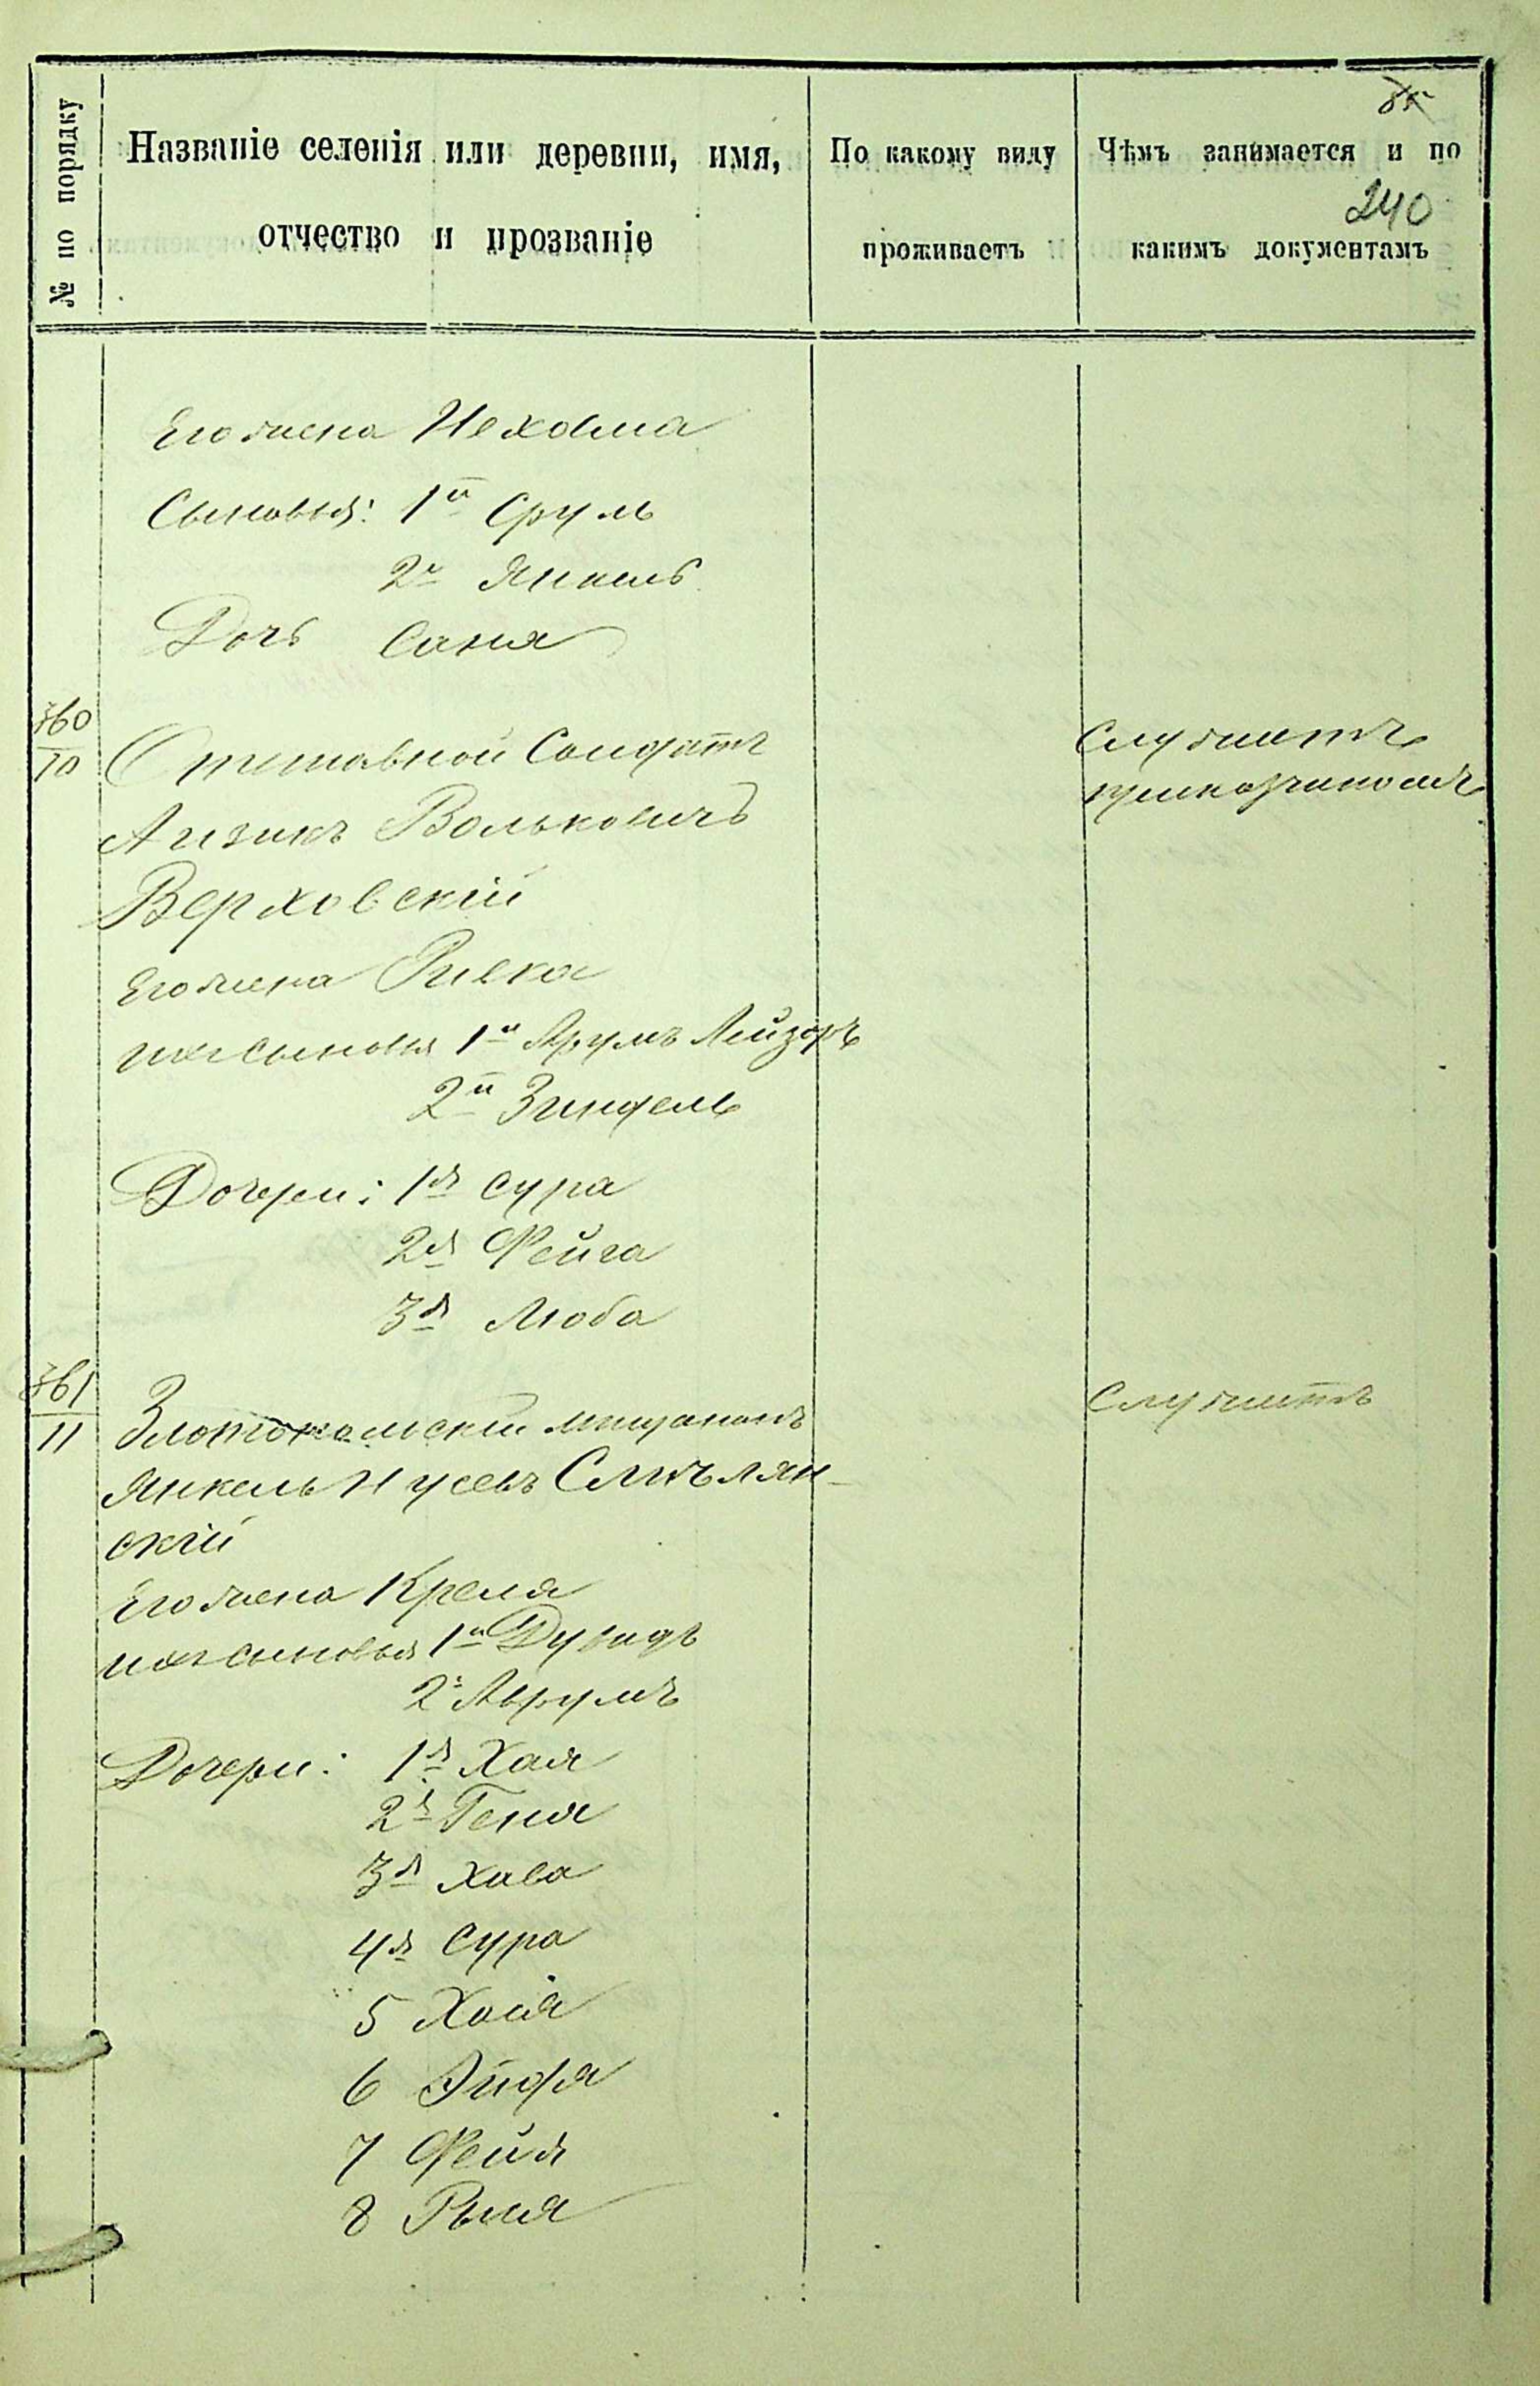 240
№ по порядку
Названіе селенія или деревни, имя,
отчество и прозваніе
По какому виду
проживаетъ
Чѣмъ занимается и по
какимъ документамъ
Его жена Нехама
Сыновья: 1й Сруль
2й Янкель
Дочь Сання
360
10
Отставной Солдатъ
Служитъ
приказчикомъ
Аизикъ Вольковичъ
Верховскій
Его жена Ривка
ихъ сыновья 1й Арумъ Лейзоръ
2й Зиндель
Дочери: 1я Сура
2я Фейга
3я Люба
361
11
Златопольскій мещанинъ
Служитъ
Янкель Нусевъ Смѣлян-
скій
Его жена Креля
ихъ сыновья 1й Дувидъ
2й Аврумъ
Дочери: 1я Хая
2я Геня
3я Хава
4я Сура
5
6 Эйдля
7 Фейя
8